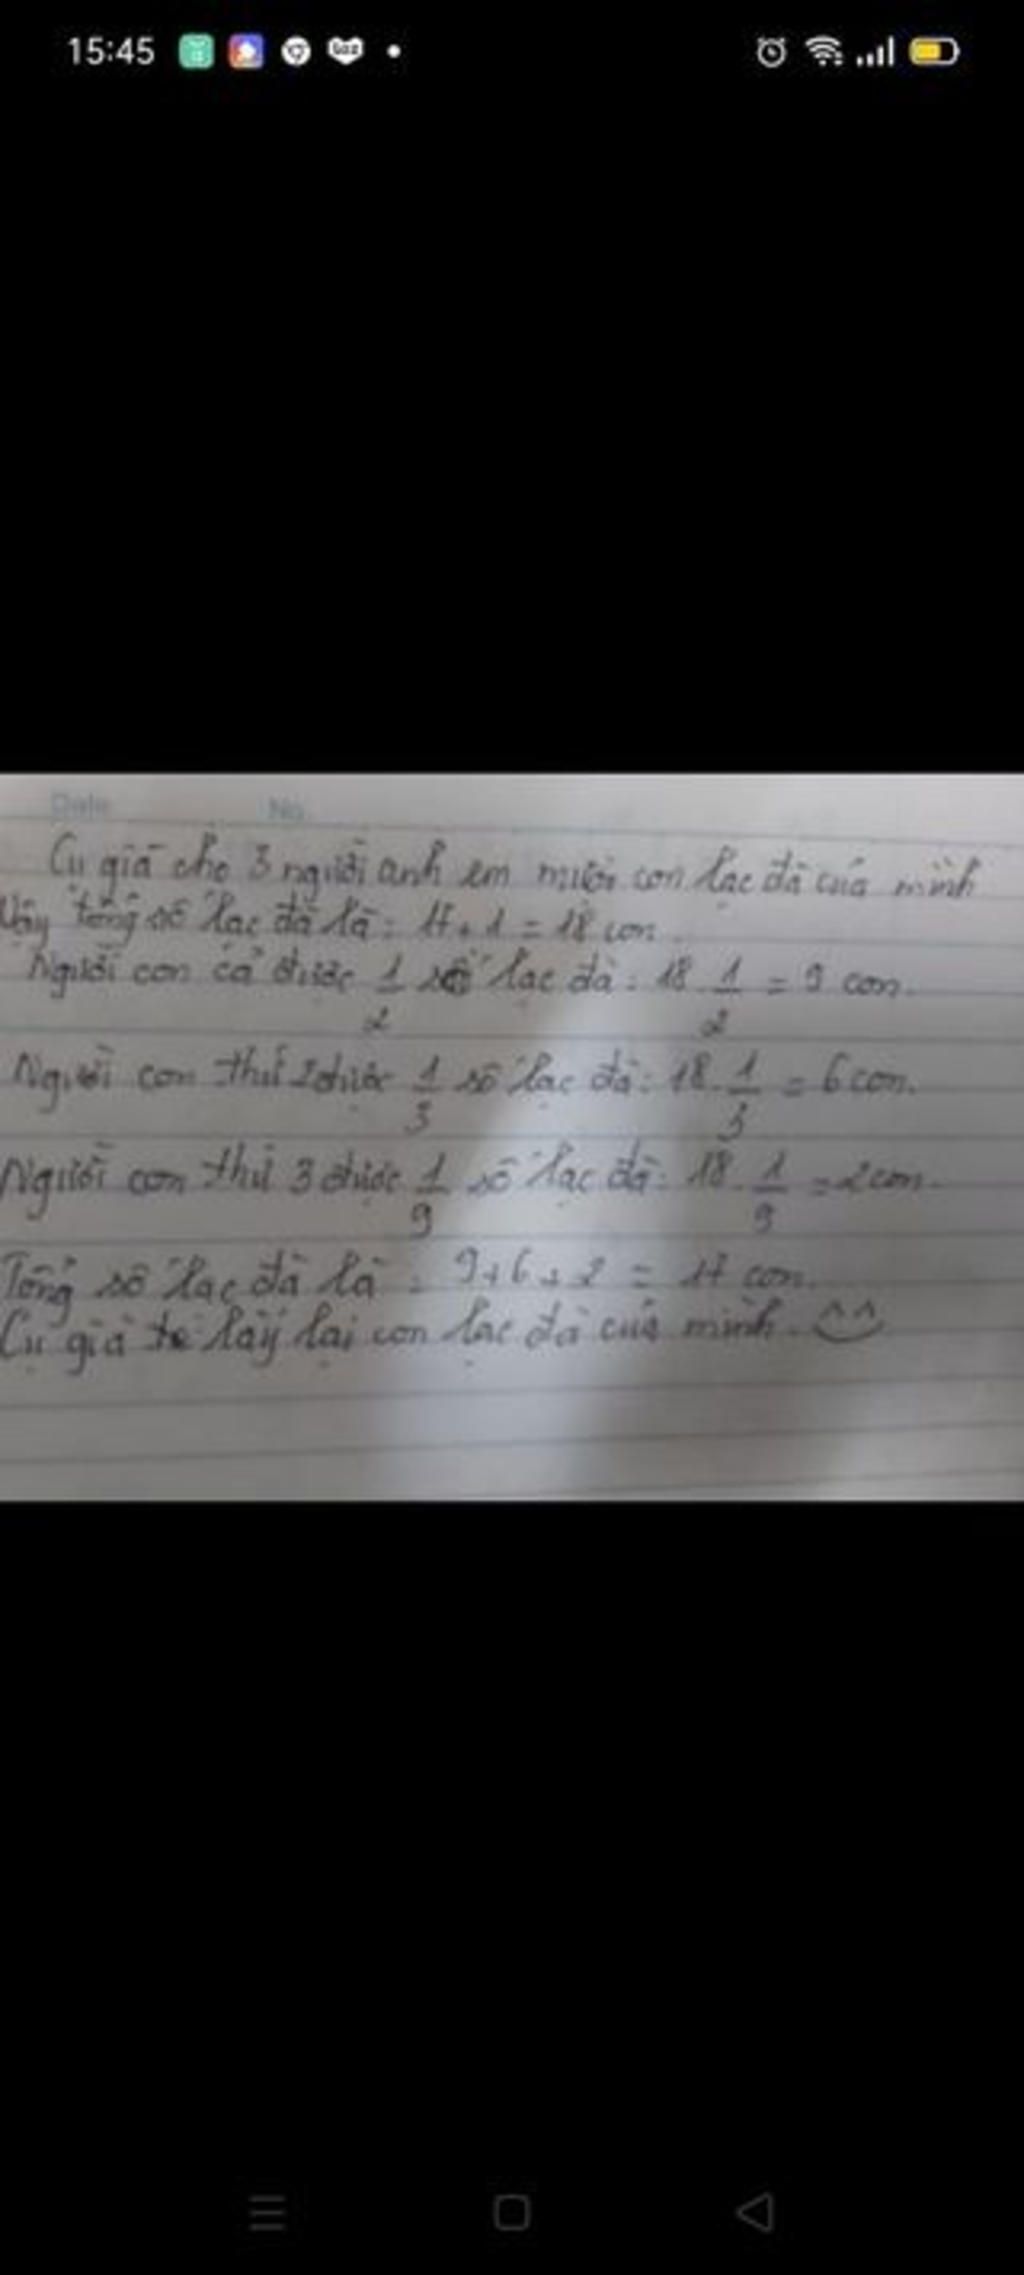 15:45
Date No.
Cụ già cho 3 người anh em mượn con lạc đà của mình
Vậy tổng số lạc đà là: 17 + 1 = 18 con.
Người con cả được 1/2 số lạc đà: 18 . 1/2 = 9 con.
Người con thứ 2 được 1/3 số lạc đà: 18 . 1/3 = 6 con.
Người con thứ 3 được 1/9 số lạc đà: 18 . 1/9 = 2 con.
Tổng số lạc đà là: 9 + 6 + 2 = 17 con.
Cụ già lấy lại con lạc đà của mình.